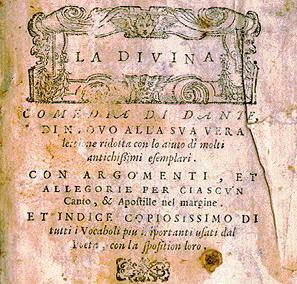 LA DIVINA
COMEDIA DI DANTE,
DI NVOVO ALLA SVA VERA
lettione ridotta con lo aiuto di molti
antichissimi esemplari.
CON ARGOMENTI, ET
ALLEGORIE PER CIASCVN
Canto, & Apostille nel margine.
ET INDICE COPIOSISSIMO DI
tutti i Vocaboli piu importanti usati dal
Poeta, con la sposition loro.